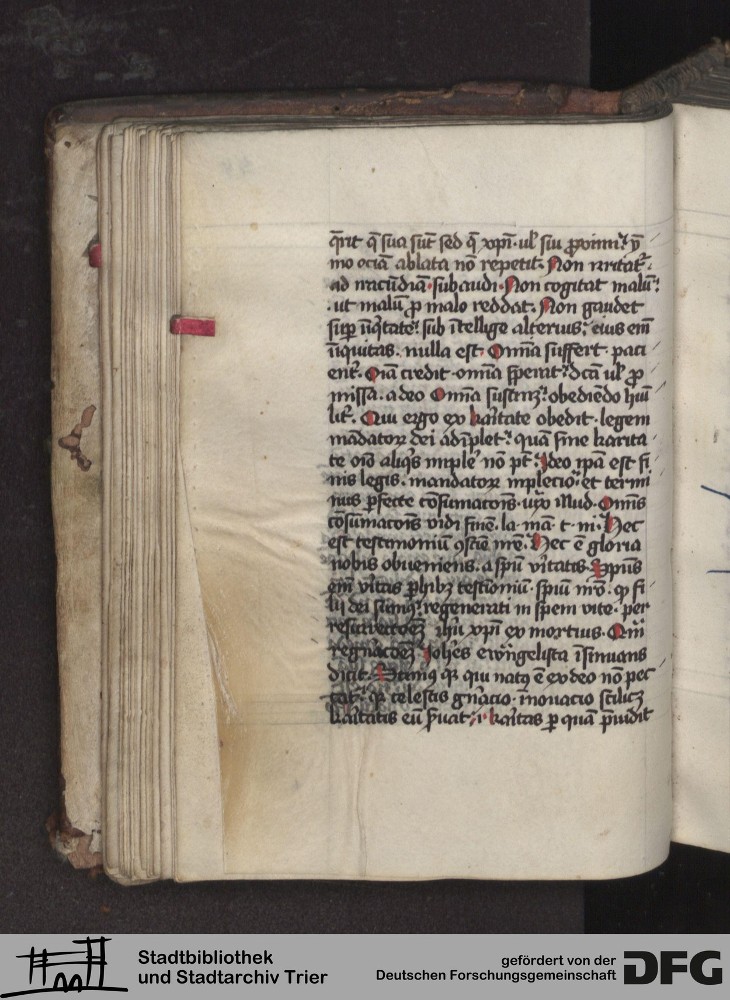 q̄rit q̄ sua sūt sed q̄ xpī · ul' sui ꝓximi · ẏ
mo eciā ablata nō repetit · Non irritat᷑ ·
ad iracūdiā · subaudi · Non cogitat malū ·
· ut malū ꝓ malo reddat · Non gaudet
suꝑ iīq̇tate · sub ītellige alterius · eius em̄
iīquitas · nulla est · Om̄ia suffert · paci
ent᷑ · Oīa credit · om̄ia sperat · dcā ul' ꝓ
missa · adeo Om̄ia sustinꝫ · obediēdo hūi
lit᷑ · Qui ergo ex karitate obedit · legem
mādatoꝝ dei adīplet · quā sine karita
te oīo aliq̇s implē nō pt̄ · Ideo ipā est fi
nis legis · mandatoꝝ implecio · et termi
nus ꝑfecte cōsumacoīs · iux̄ illud · Om̄is
cōsumacoīs vidi finē · la · mā · t · ni · Hec
est testimoniū ꝯsciē nr̄e · Hec ē gloria
nobis obueniens · a spū v̄itatis · Spūs
em̄ v̄itatis ꝑhibꝫ testīoniū · spūi nr̄o · ꝙ fi
lii dei sumꝰ · regenerati in spem vite · per
resurrectōeꝫ ihū xpī ex mortuis · Quā
regn̄acōeꝫ Joh̄es ewāngelista īsinuans
dicit · Scimꝰ qꝛ qui natꝰ ē ex deo nō pec
cat · qꝛ celestis gn̄acio · īnouacio scilicꝫ
karitatis eū ẜuat · i · karitas ꝑ quā p̄uidit
Stadtbibliothek
und Stadtarchiv Trier
gefördert von der
Deutschen Forschungsgemeinschaft
DFG